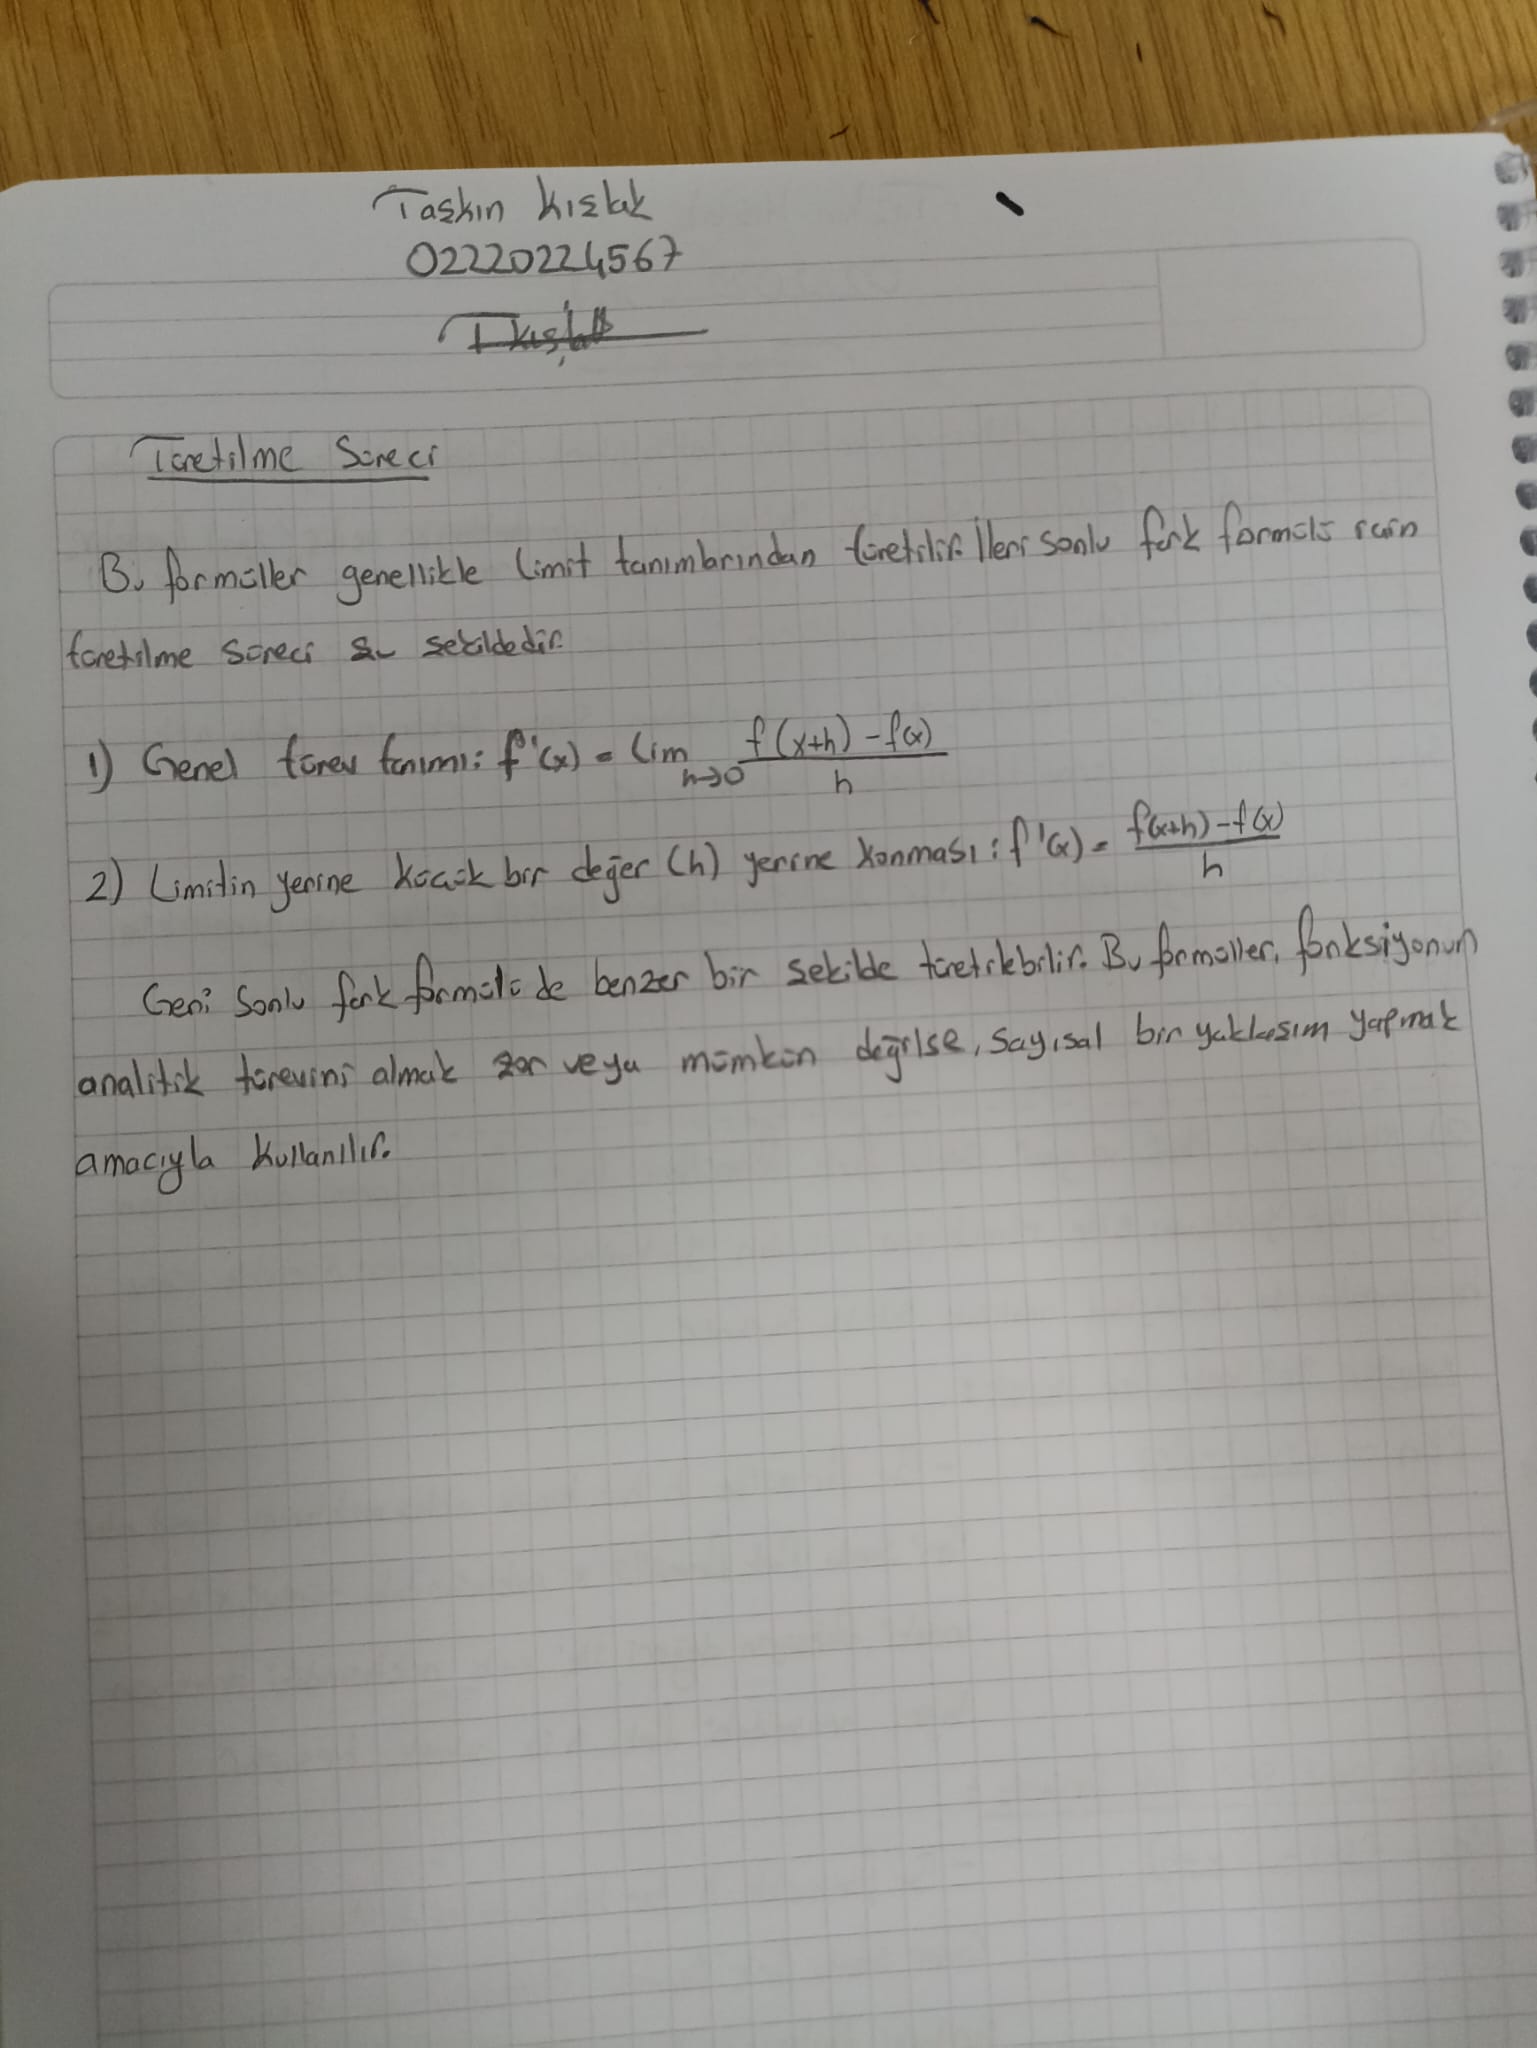 Taşkın Kışlak
02220224567
T Kışlak
Türetilme Süreci
Bu formüller genellikle limit tanımlarından türetilir. İleri sonlu fark formülü için
türetilme süreci şu şekildedir.
1) Genel türev tanımı: f'(x) = lim h→0 f(x+h) - f(x) / h
2) Limitin yerine küçük bir değer (h) yerine konması: f'(x) = f(x+h) - f(x) / h
Geri sonlu fark formülü de benzer bir şekilde türetilebilir. Bu formüller, fonksiyonun
analitik türevini almak zor veya mümkün değilse, sayısal bir yaklaşım yapmak
amacıyla kullanılır.